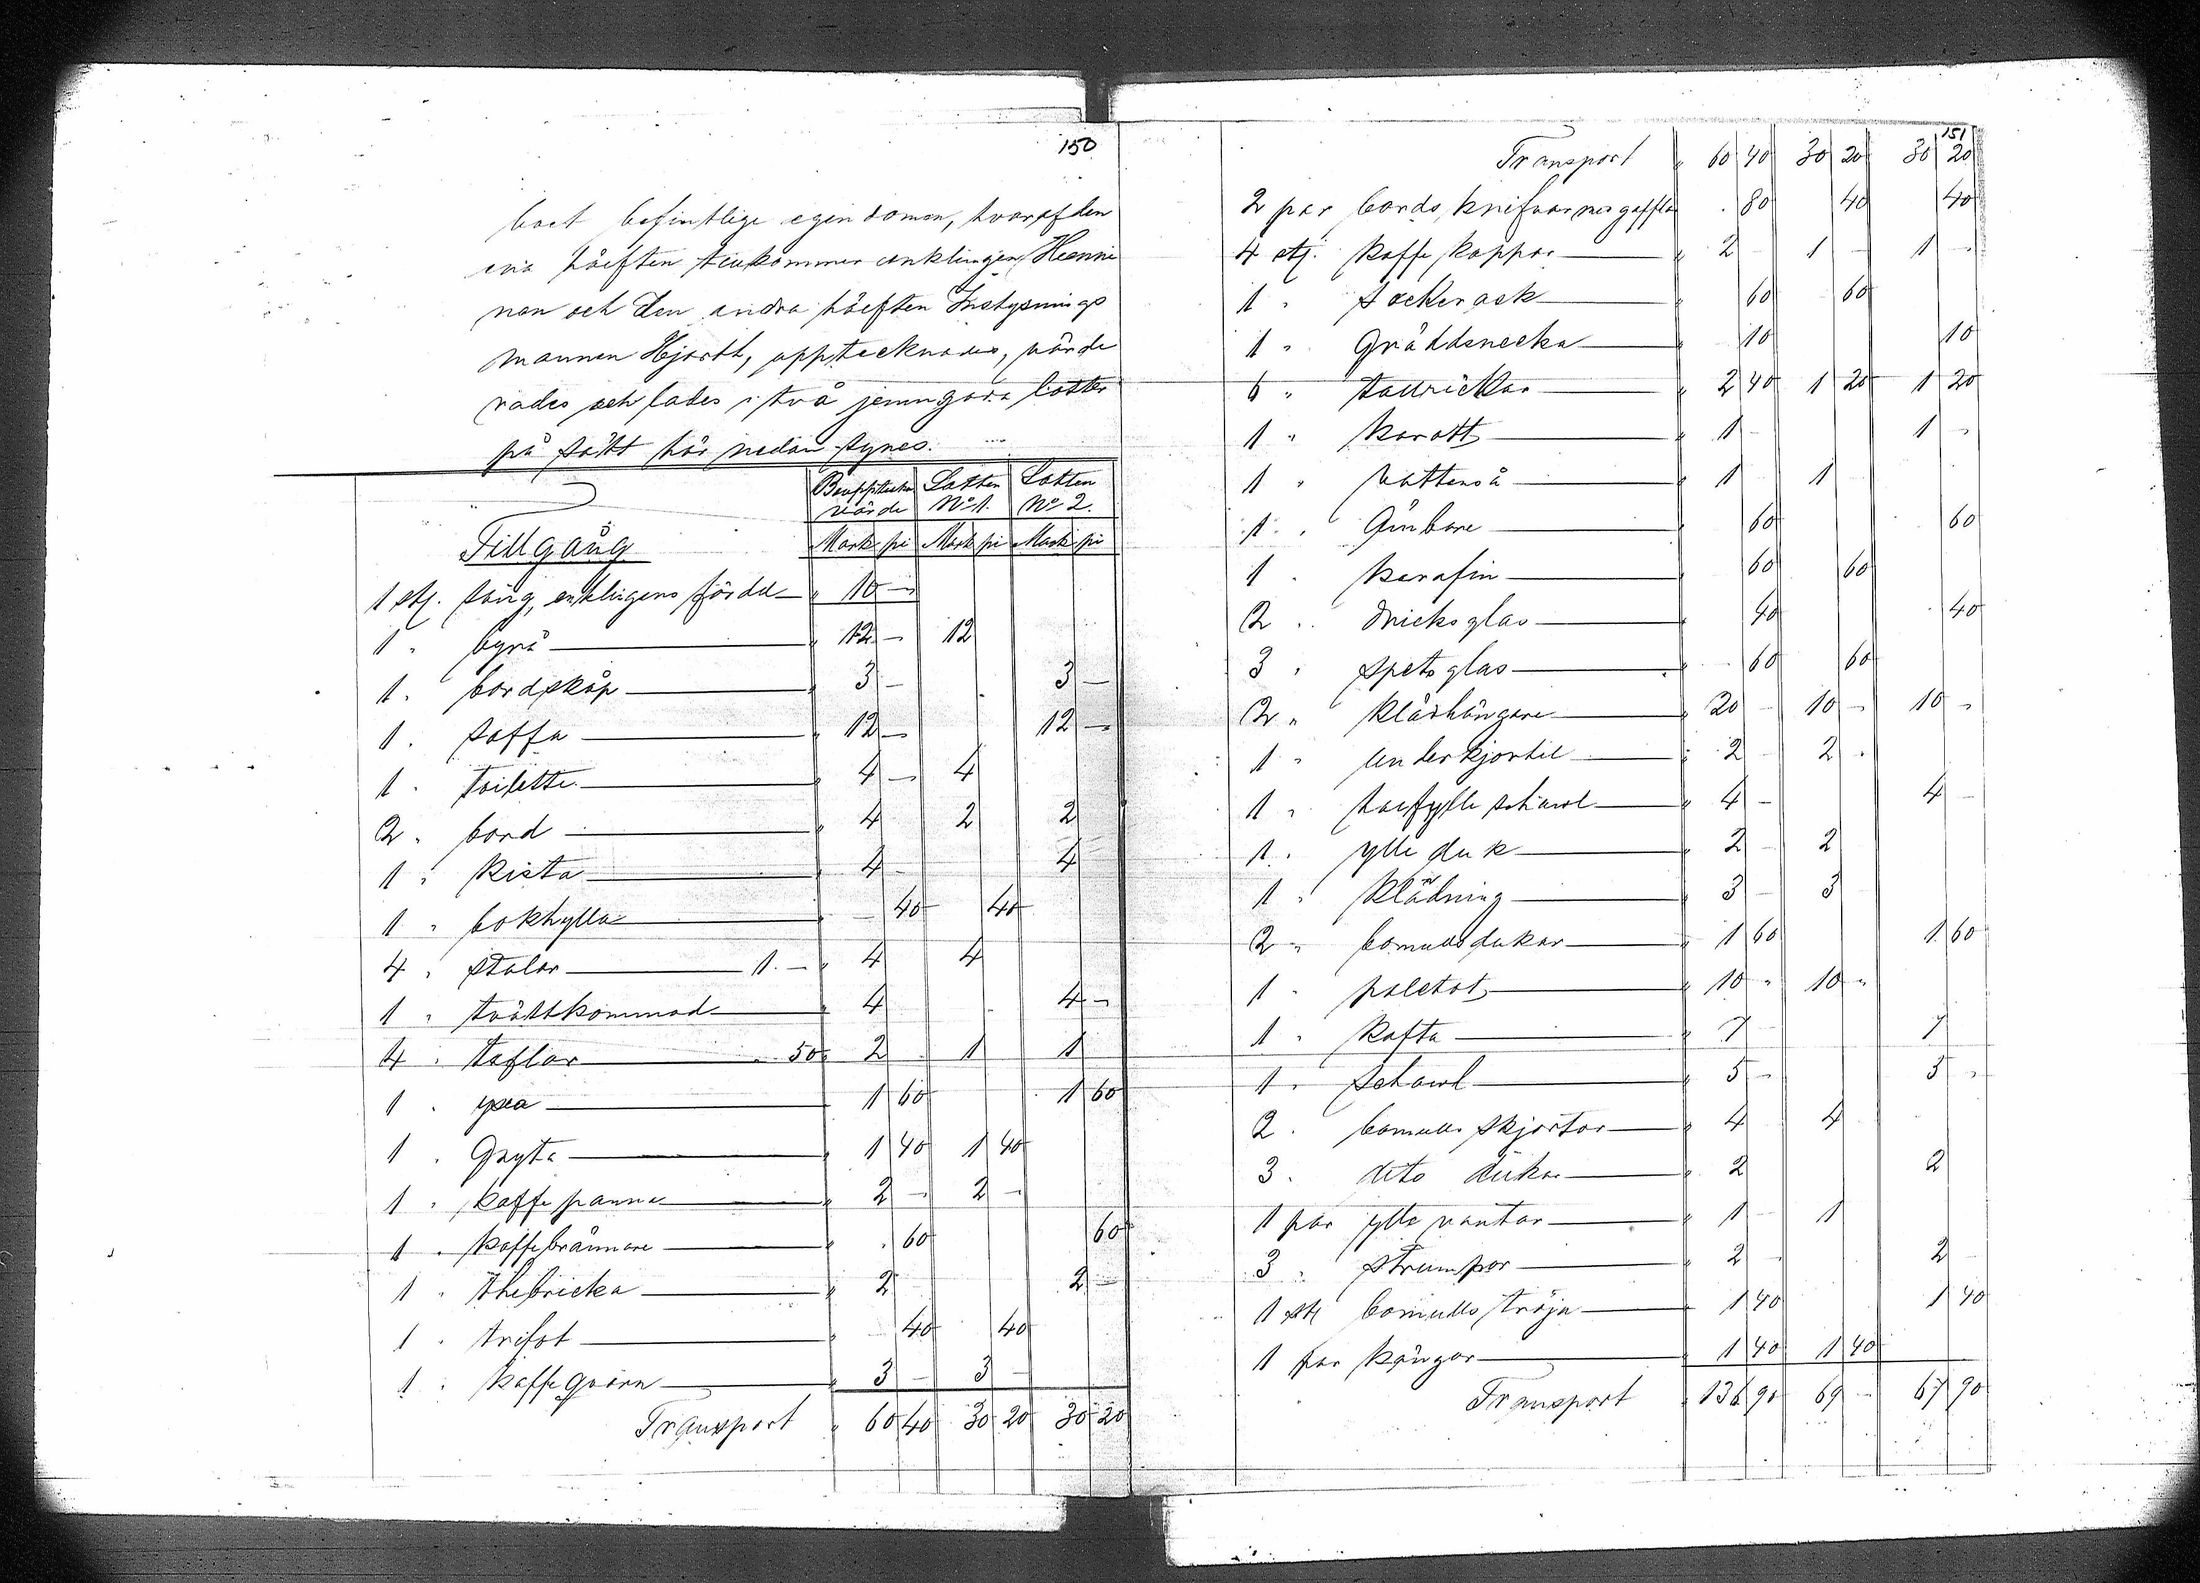 150
boet befintlige egendomen, hvaraf den
ena hälften tillkommer enklingen Henni
nen och den andra hälften Instyrnings
mannen Hjorth, upptecknades, värde
rades och lades i två jemngoda lotter
på sätt här nedan synes.
Bouppteckn värde Lotten No 1. Lotten No 2.
Tillgång Mark pi Mark pi Mark pi
1 stj. säng, enklingens fördel " 10 —
1 " byrå " 12 — 12
1 " bordskåp 3 — 3 —
1 " soffa 12 — 12 —
1 " toilette 4 — 4
2 " bord " 4 2 2
1 " kista 4 4
1 " bokhylla — 40 40
4 " stolar 1. — " 4 4
1 " tvättkommod 4 4 —
4 " taflor 50 2 1 1
1 " yxa 1 60 1 60
1 " Gryta " 1 40 1 40
1 " kaffepanna " 2 — 2 —
1 " kaffebrännare " 60 60
1 " thebricka " 2 2 —
1 " trifot 40 40
1 " kaffeqvarn " 3 — 3 —
Transport " 60 40 30 20 30 20
151
Transport " 60 40 30 20 30 20
2 par bords knifvar med gafflar 80 40 40
4 stj. kaffe koppar " 2 1 — 1 —
1 " sockerask " 60 60
1 " Gräddsnecka 10 10
6 " tallrickar " 2 40 1 20 1 20
1 " karott " 1 1 —
1 " vattenså " 1 1
1 " Ämbare 60 60
1 " karafin 60 60
2 " dricksglas 40 40
3 " spetsglas 60 60
2 " klädhängare " 20 10 — 10 —
1 " underkjortil " 2 2
1 " halfylle schawl " 4 — 4 —
1 " ylle duk " 2 2
1 " klädning " 3 — 3
2 " bomullsdukar " 1 60 1 60
1 " paletot " 10 " 10 "
1 " kofta " 7 7
1 " schawl " 5 — 5 —
2 " bomulls skjortor " 4 4
3 " dito dukar " 2 2
1 par ylle vantar " 1 1
3 " strumpor " 2 2
1 st bomulls tröja " 1 40 1 40
1 par kängor " 1 40 1 40
Transport " 136 90 69 — 67 90